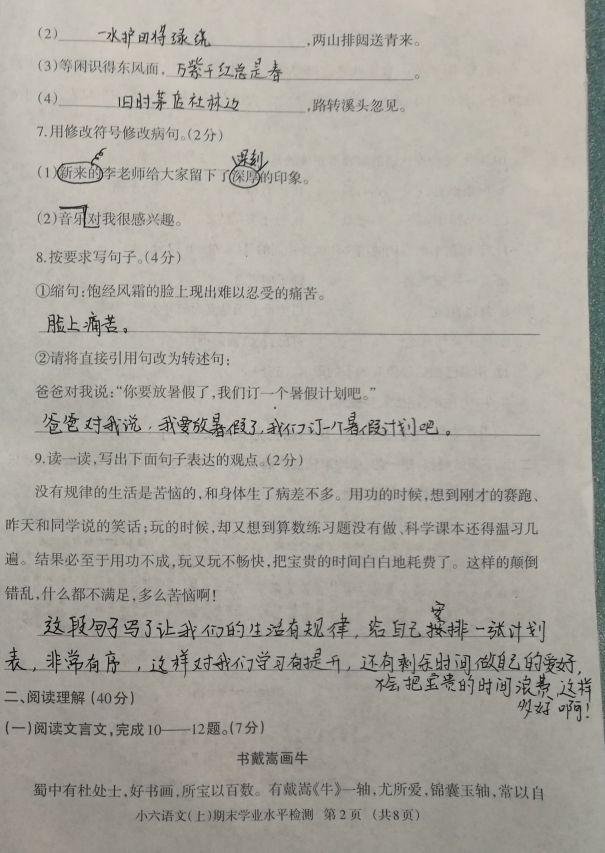 (2)一水护田将绿绕,两山排闼送青来。
(3)等闲识得东风面,万紫千红总是春。
(4)旧时茅店社林边,路转溪头忽见。
7.用修改符号修改病句。(2分)
深刻
(1)新来的李老师给大家留下了深厚的印象。
(2)音乐对我很感兴趣。
8.按要求写句子。(4分)
①缩句:饱经风霜的脸上现出难以忍受的痛苦。
脸上痛苦。
②请将直接引用句改为转述句:
爸爸对我说:“你要放暑假了,我们订一个暑假计划吧。”
爸爸对我说,我要放暑假了,我们订一个暑假计划吧。
9.读一读,写出下面句子表达的观点。(2分)
没有规律的生活是苦恼的,和身体生了病差不多。用功的时候,想到刚才的赛跑、
昨天和同学说的笑话;玩的时候,却又想到算数练习题没有做、科学课本还得温习几
遍。结果必至于用功不成,玩又玩不畅快,把宝贵的时间白白地耗费了。这样的颠倒
错乱,什么都不满足,多么苦恼啊!
安
这段句子写了让我们的生活有规律,给自己按排一张计划
表,非常有序,这样对我们学习有提升,还有剩余时间做自己的爱好,
不会把宝贵的时间浪费,这样
多好啊!
二、阅读理解(40分)
(一)阅读文言文,完成10——12题。(7分)
书戴嵩画牛
蜀中有杜处士,好书画,所宝以百数。有戴嵩《牛》一轴,尤所爱,锦囊玉轴,常以自
小六语文(上)期末学业水平检测 第2页 (共8页)